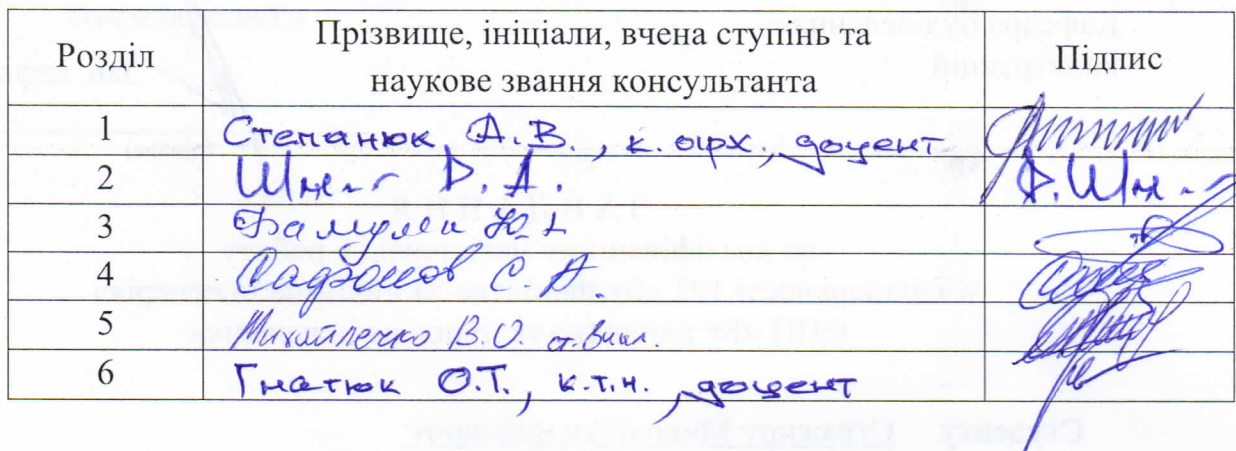 Розділ Прізвище, ініціали, вчена ступінь та наукове звання консультанта Підпис
1 Степанюк А.В., к. арх., доцент
2 Д. А.
3 Фамуляк Ю.Є
4 Сафонов С. А.
5 Михайлечко В.О. ст. викл.
6 Гнатюк О.Т., к.т.н., доцент